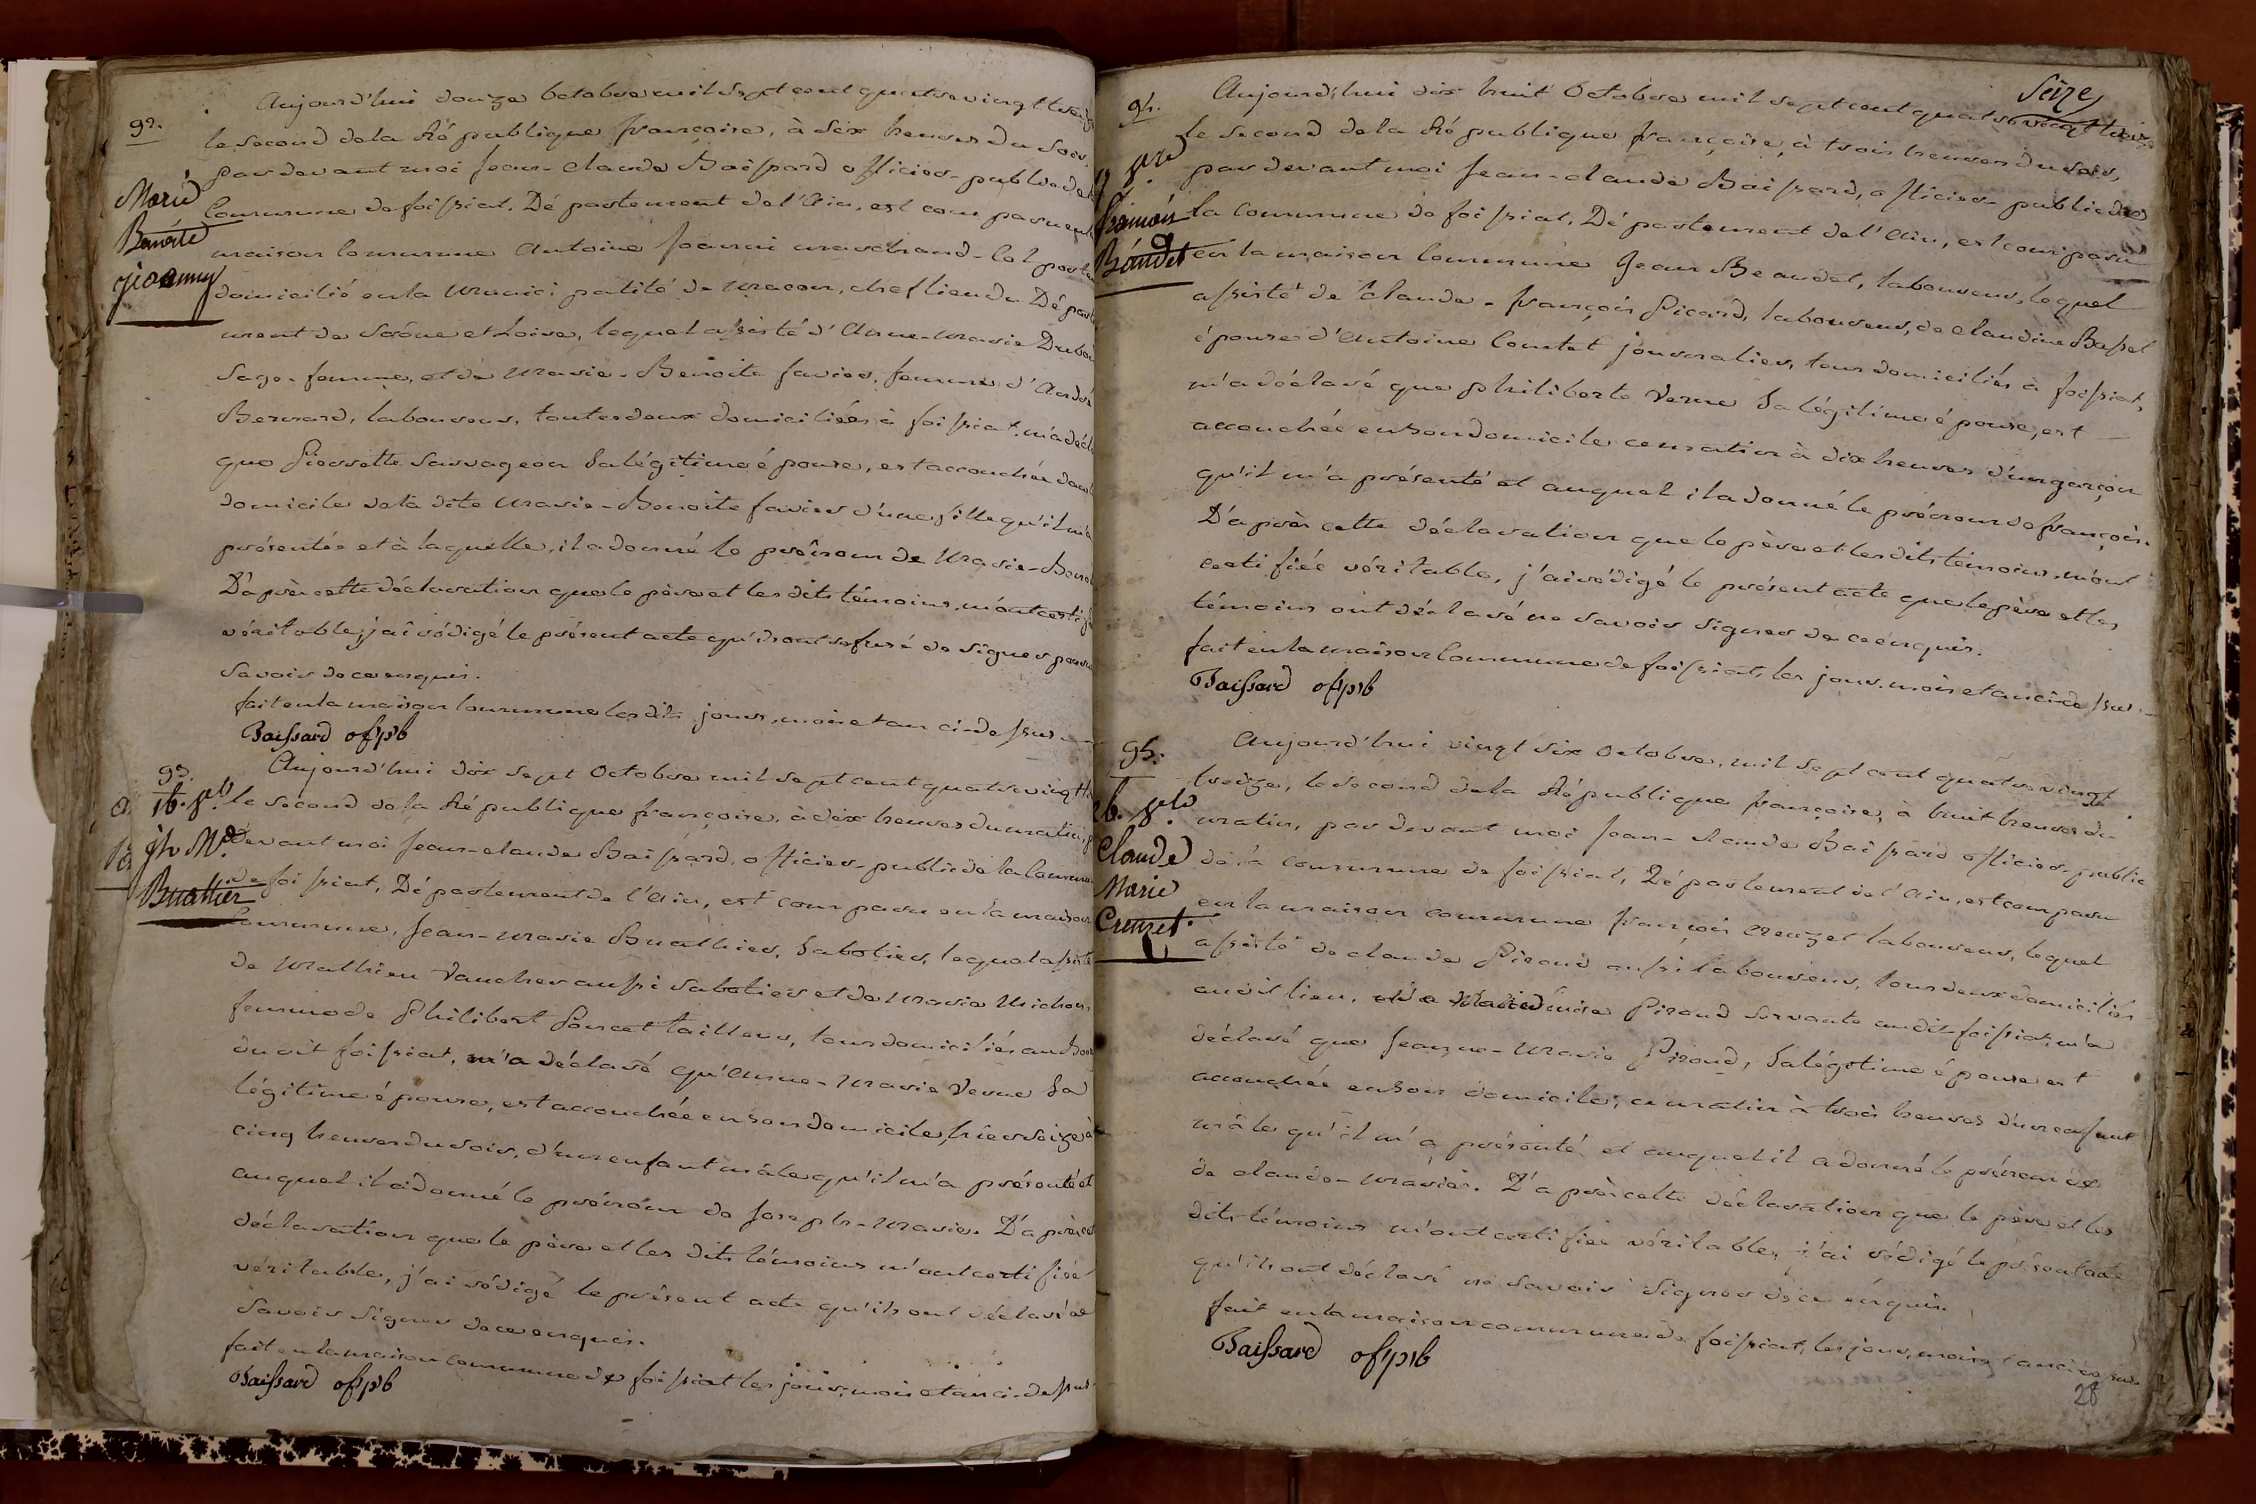 92.
Marie
Benoite
Joanny
Aujourd'hui douze octobre mil sept cent quatre vingt treize
le second de la République françoise, à six heures du soir,
Pardevant moi Jean-claude Baissard officier public de la
Commune de foissiat, Département de l'Ain, est comparu en la
maison commune Antoine Joanni marchand-colporteur
domicilié en la municipalité de macon, chef lieu du Départe
ment de Saône et Loire, lequel assisté d'Anne-marie Dubois
Sage-femme, et de marie-Benoite favier, femme d'André
Bernard, laboureur, toutes deux domiciliées à foissiat, m'a déclaré
que Pierrette Sauvageon sa légitime épouse, est accouchée dans le
domicile de la dite marie-Benoite favier d'une fille qu'il m'a
présentée et à laquelle, il a donné le prénom de Marie-Benoite
D'après cette déclaration que le père et les dits témoins m'ont certifié
véritable, j'ai rédigé le présent acte qu'ils ont refusé de signer pour ne
savoir de ce enquis.
fait en la maison commune les dits jour, mois et an ci-dessus
Baissard of pub
93.
16. 8bre
jh Me
Buathier
Aujourd'hui dix sept Octobre mil sept cent quatre vingt tr
le second de la République françoise, à dix heures du matin, p
devant moi Jean-claude Baissard, officier-public de la Commune
de foissiat, Département de l'Ain, est comparu en la maison
Commune, Jean-marie Buathier, Sabotier, lequel assisté
de Mathieu Vaucher aussi sabotier et de marie Michon,
femme de Philibert Poncet tailleur, tous domiciliés au bourg
dudit foissiat, m'a déclaré qu'Anne-Marie Verne sa
légitime épouse, est accouchée en son domicile, hier seize à
cinq heures du soir, d'un enfant mâle qu'il m'a présenté et
auquel il a donné le prénom de Joseph-marie. D'après cet
déclaration que le père et les dits témoins m'ont certifiée
véritable, j'ai rédigé le présent acte qu'ils ont déclaré ne
savoir signer de ce enquis.
fait en la maison commune de foissiat les jour, mois et an ci-dessus
Baissard of pub
Seize
94.
françois
Baudet
Aujourd'hui dix huit Octobre mil sept cent quatre vingt treize
le second de la République françoise, à trois heures du soir,
par devant moi Jean-claude Baissard, officier public de
la Commune de foissiat, Département de l'Ain, est comparu
en la maison Commune Jean Beaudet, laboureur, lequel
assisté de claude-françois Picard, laboureur, de claudine Basset
épouse d'Antoine Comtet journalier, tous domiciliés à foissiat,
m'a déclaré que philiberte Verne sa légitime épouse, est
accouchée en son domicile ce matin à dix heures d'un garçon
qu'il m'a présenté et auquel il a donné le prénom de françois.
D'après cette déclaration que le père et les dits témoins m'ont
certifiée véritable, j'ai rédigé le présent acte que le père et les
témoins ont déclaré ne savoir signer de ce enquis.
fait en la maison Commune de foissiat, les jour, mois et an ci-dessus
Baissard of pub
95.
26. 8bre
Claude
Marie
Creuzet
Aujourd'hui vingt six Octobre, mil sept cent quatre vingt
treize, le second de la République françoise, à huit heures du
matin, par devant moi Jean-claude Baissard officier-public
de la commune de foissiat, Département de l'Ain, est comparu
en la maison commune françois Creuzet laboureur, lequel
assisté de claude Piroud aussi laboureur, tous deux domiciliés
audit lieu, et de Marie Piroud servante audit foissiat, m'a
déclaré que Jeanne-Marie Piroud, sa légitime épouse est
accouchée en son domicile, ce matin à trois heures d'un enfant
mâle qu'il m'a présenté, et auquel il a donné le prénom de
de claude-marie. D'après cette déclaration que le père et les
dits témoins m'ont certifiée véritable, j'ai rédigé le présent acte
qu'ils ont déclaré ne savoir signer de ce enquis.
fait en la maison commune de foissiat, les jour, mois et an ci-dessus
Baissard of pub
28